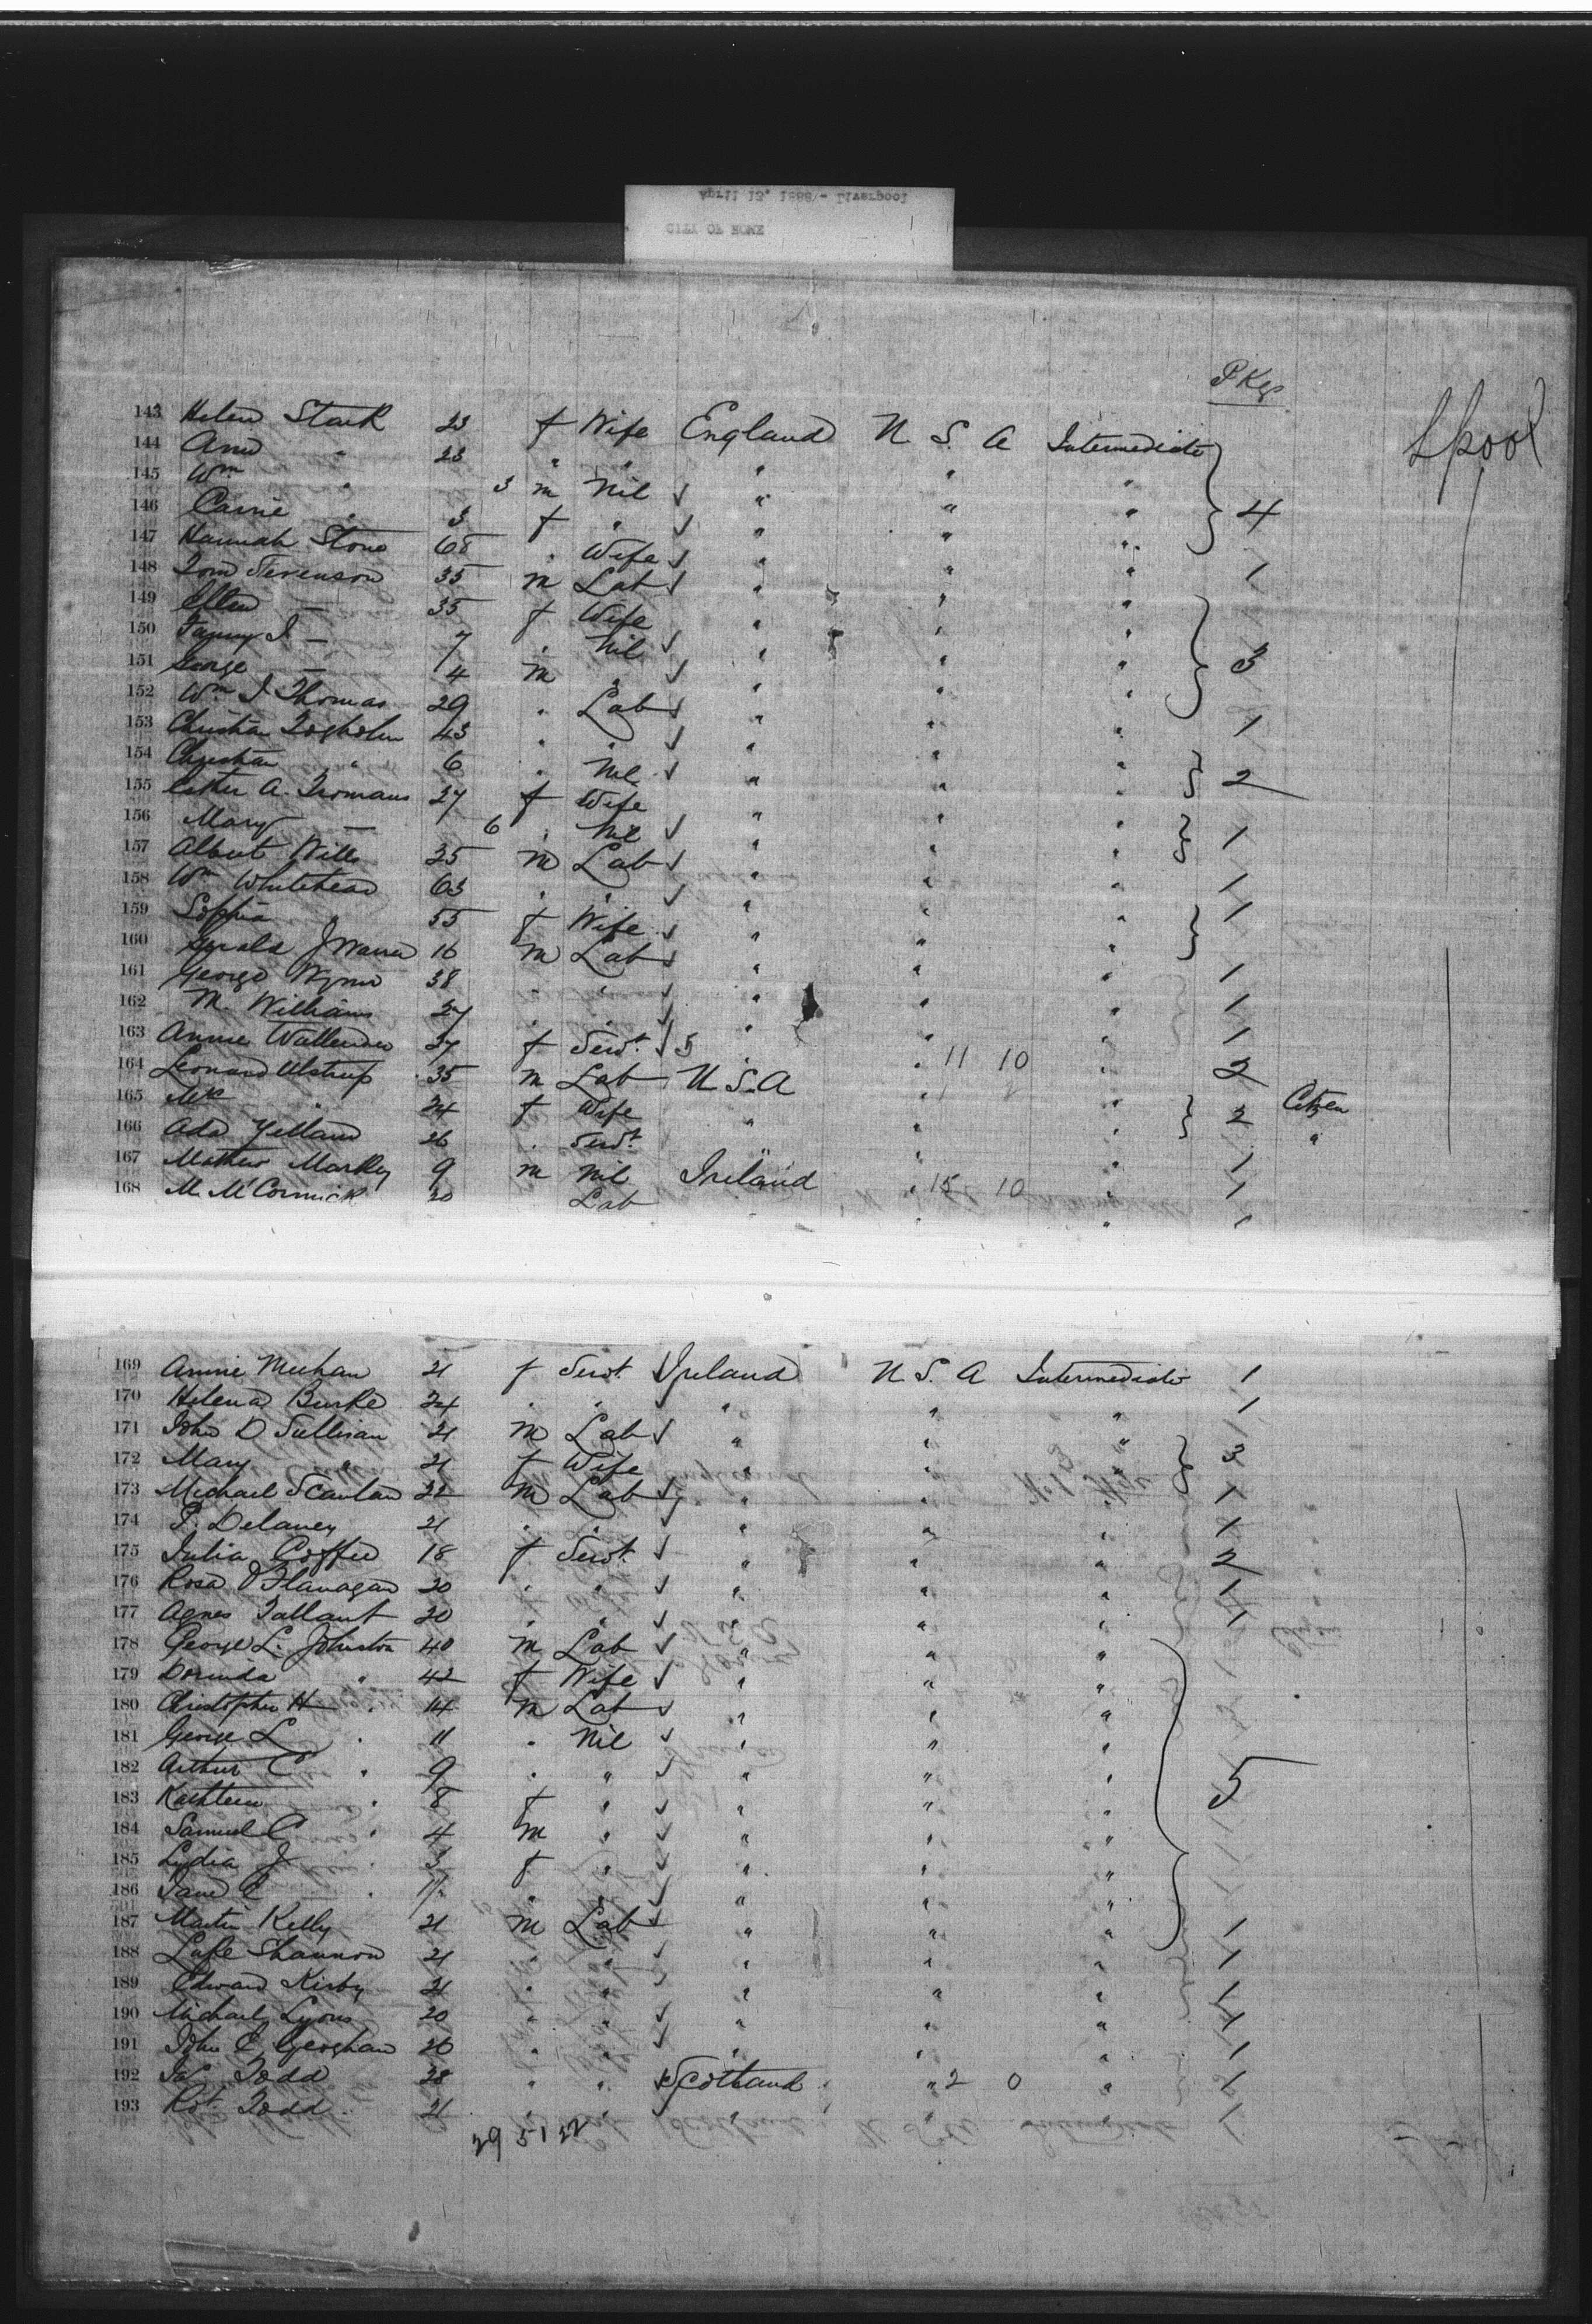 April 13, 1888 - Liverpool
CITY OF ROME
Pkgs
Lpool
143 Helen Stark 23 f Wife England U S A Intermediate
144 Ann " 23 " " " " "
145 Wm " 3 m Nil " " " 4
146 Carrie " 3 f " " " "
147 Hannah Stone 68 " Wife " " " 1
148 Tom Stevenson 35 m Lab " " "
149 Ellen — 35 f Wife " " "
150 Fanny I — 7 " Nil " " " 3
151 George — 4 m " " " "
152 Wm I Thomas 29 " Lab " " " 1
153 Christian 43 " " " " "
154 Christian " 6 " Nil " " " 2
155 Esther A. Tromans 27 f Wife " " "
156 Mary — 6 " Nil " " " 1
157 Albert Wills 25 m Lab " " " 1
158 Wm Whitehead 63 " " " " " 1
159 Sophia 55 f Wife " " "
160 Gerald J Warren 16 m Lab " " " 1
161 George Wynn 38 " " " " " 1
162 M. Williams 27 " " " " " 1
163 Annie 27 f Servt. 5 " " 11 10 " 2
164 Leonard Ulstrup 35 m Lab U.S.A " " Citzen
165 Mrs " 24 f Wife " " " 2 "
166 Ada Yelland 26 " Servt. " " 1
167 Mathew Markey 9 m Nil Ireland " 15 10 " 1
168 M. McCormick 20 Lab " " 1
169 Annie Meehan 21 f Servt. Ireland U S. A Intermediate 1
170 Helena Burke 24 " " " " " 1
171 John O Sullivan 21 m Lab " " "
172 Mary " 21 f Wife " " " 3
173 Michael Scanlan 22 m Lab " " " 1
174 P. Delaney 21 " " " " " 1
175 Julia Coffee 18 f Servt. " " " 2
176 Rosa O'Flanagan 20 " " " " " 1
177 Agnes Tallant 20 " " " " " 1
178 George L. Johnston 40 m Lab " " "
179 Dorinda " 42 f Wife " " "
180 Christopher H " 14 m Lab " " "
181 George L " 11 " Nil " " "
182 Arthur C " 9 " " " " " 5
183 Kathleen " 8 f " " " "
184 Samuel C " 4 m " " " "
185 Lydia J " 3 f " " " "
186 Jane E " " " " " "
187 Martin Kelly 21 m Lab " " " 1
188 Luke Shannon 21 " " " " " 1
189 Edward Kirby 21 " " " " " 1
190 Michael Lyons 20 " " " " " 1
191 John C Geoghan 26 " " " " " 1
192 Jas Todd 28 " " Scotland " 2 0 " 1
193 Rot. Todd 21 " " " " 1
29 51 22